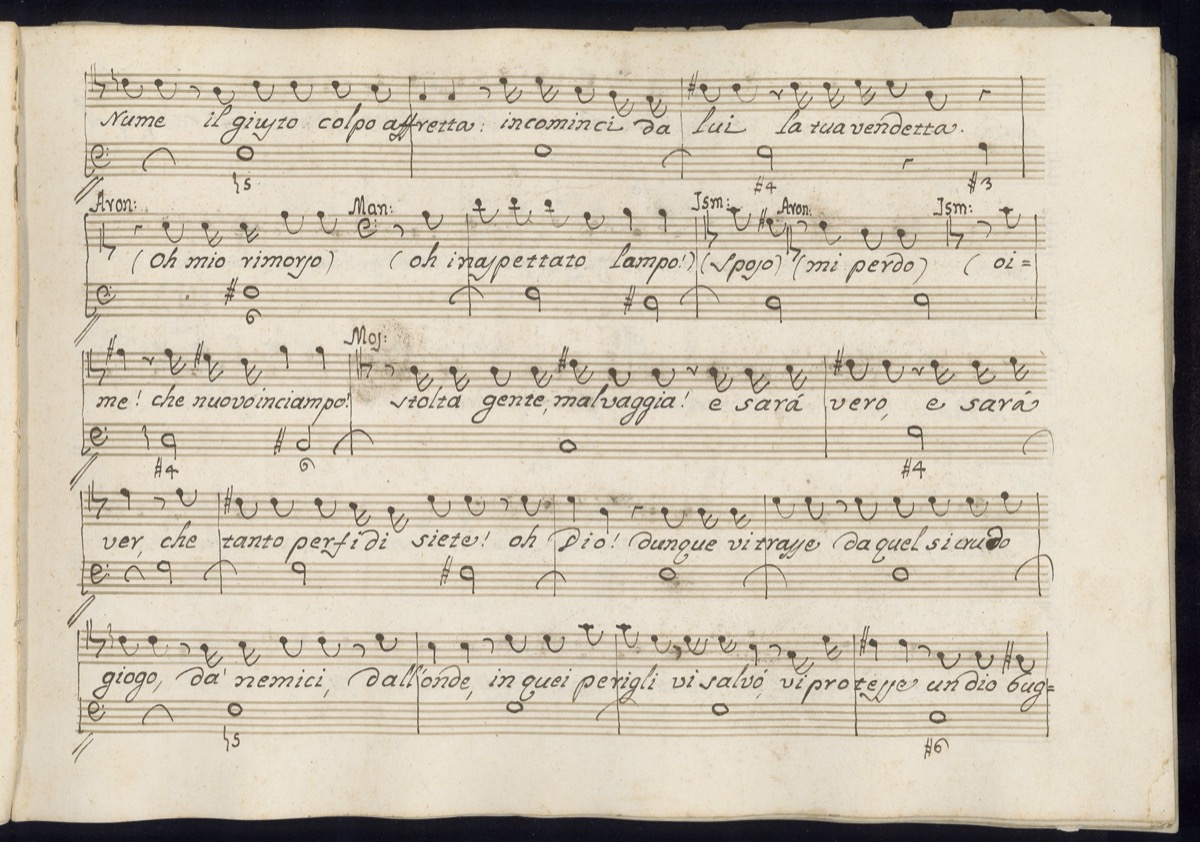 Nume il giusto colpo affretta: incominci da lui la tua vendetta.
♮5 #4 #3
Aron: Man: Ism: Aron: Ism:
(Oh mio rimorso) (oh inaspettato lampo!) (sposo) (mi perdo) (oi=
6
Mos:
me! che nuovo inciampo! stolta gente, malvaggia! e sará vero, e sará
#4 6 #4
ver, che tanto perfidi siete! oh Dio! dunque vi trasse da quel si crudo
giogo, da' nemici, dall'onde, in quei perigli vi salvó, vi protesse un dio bug=
♮5 #6